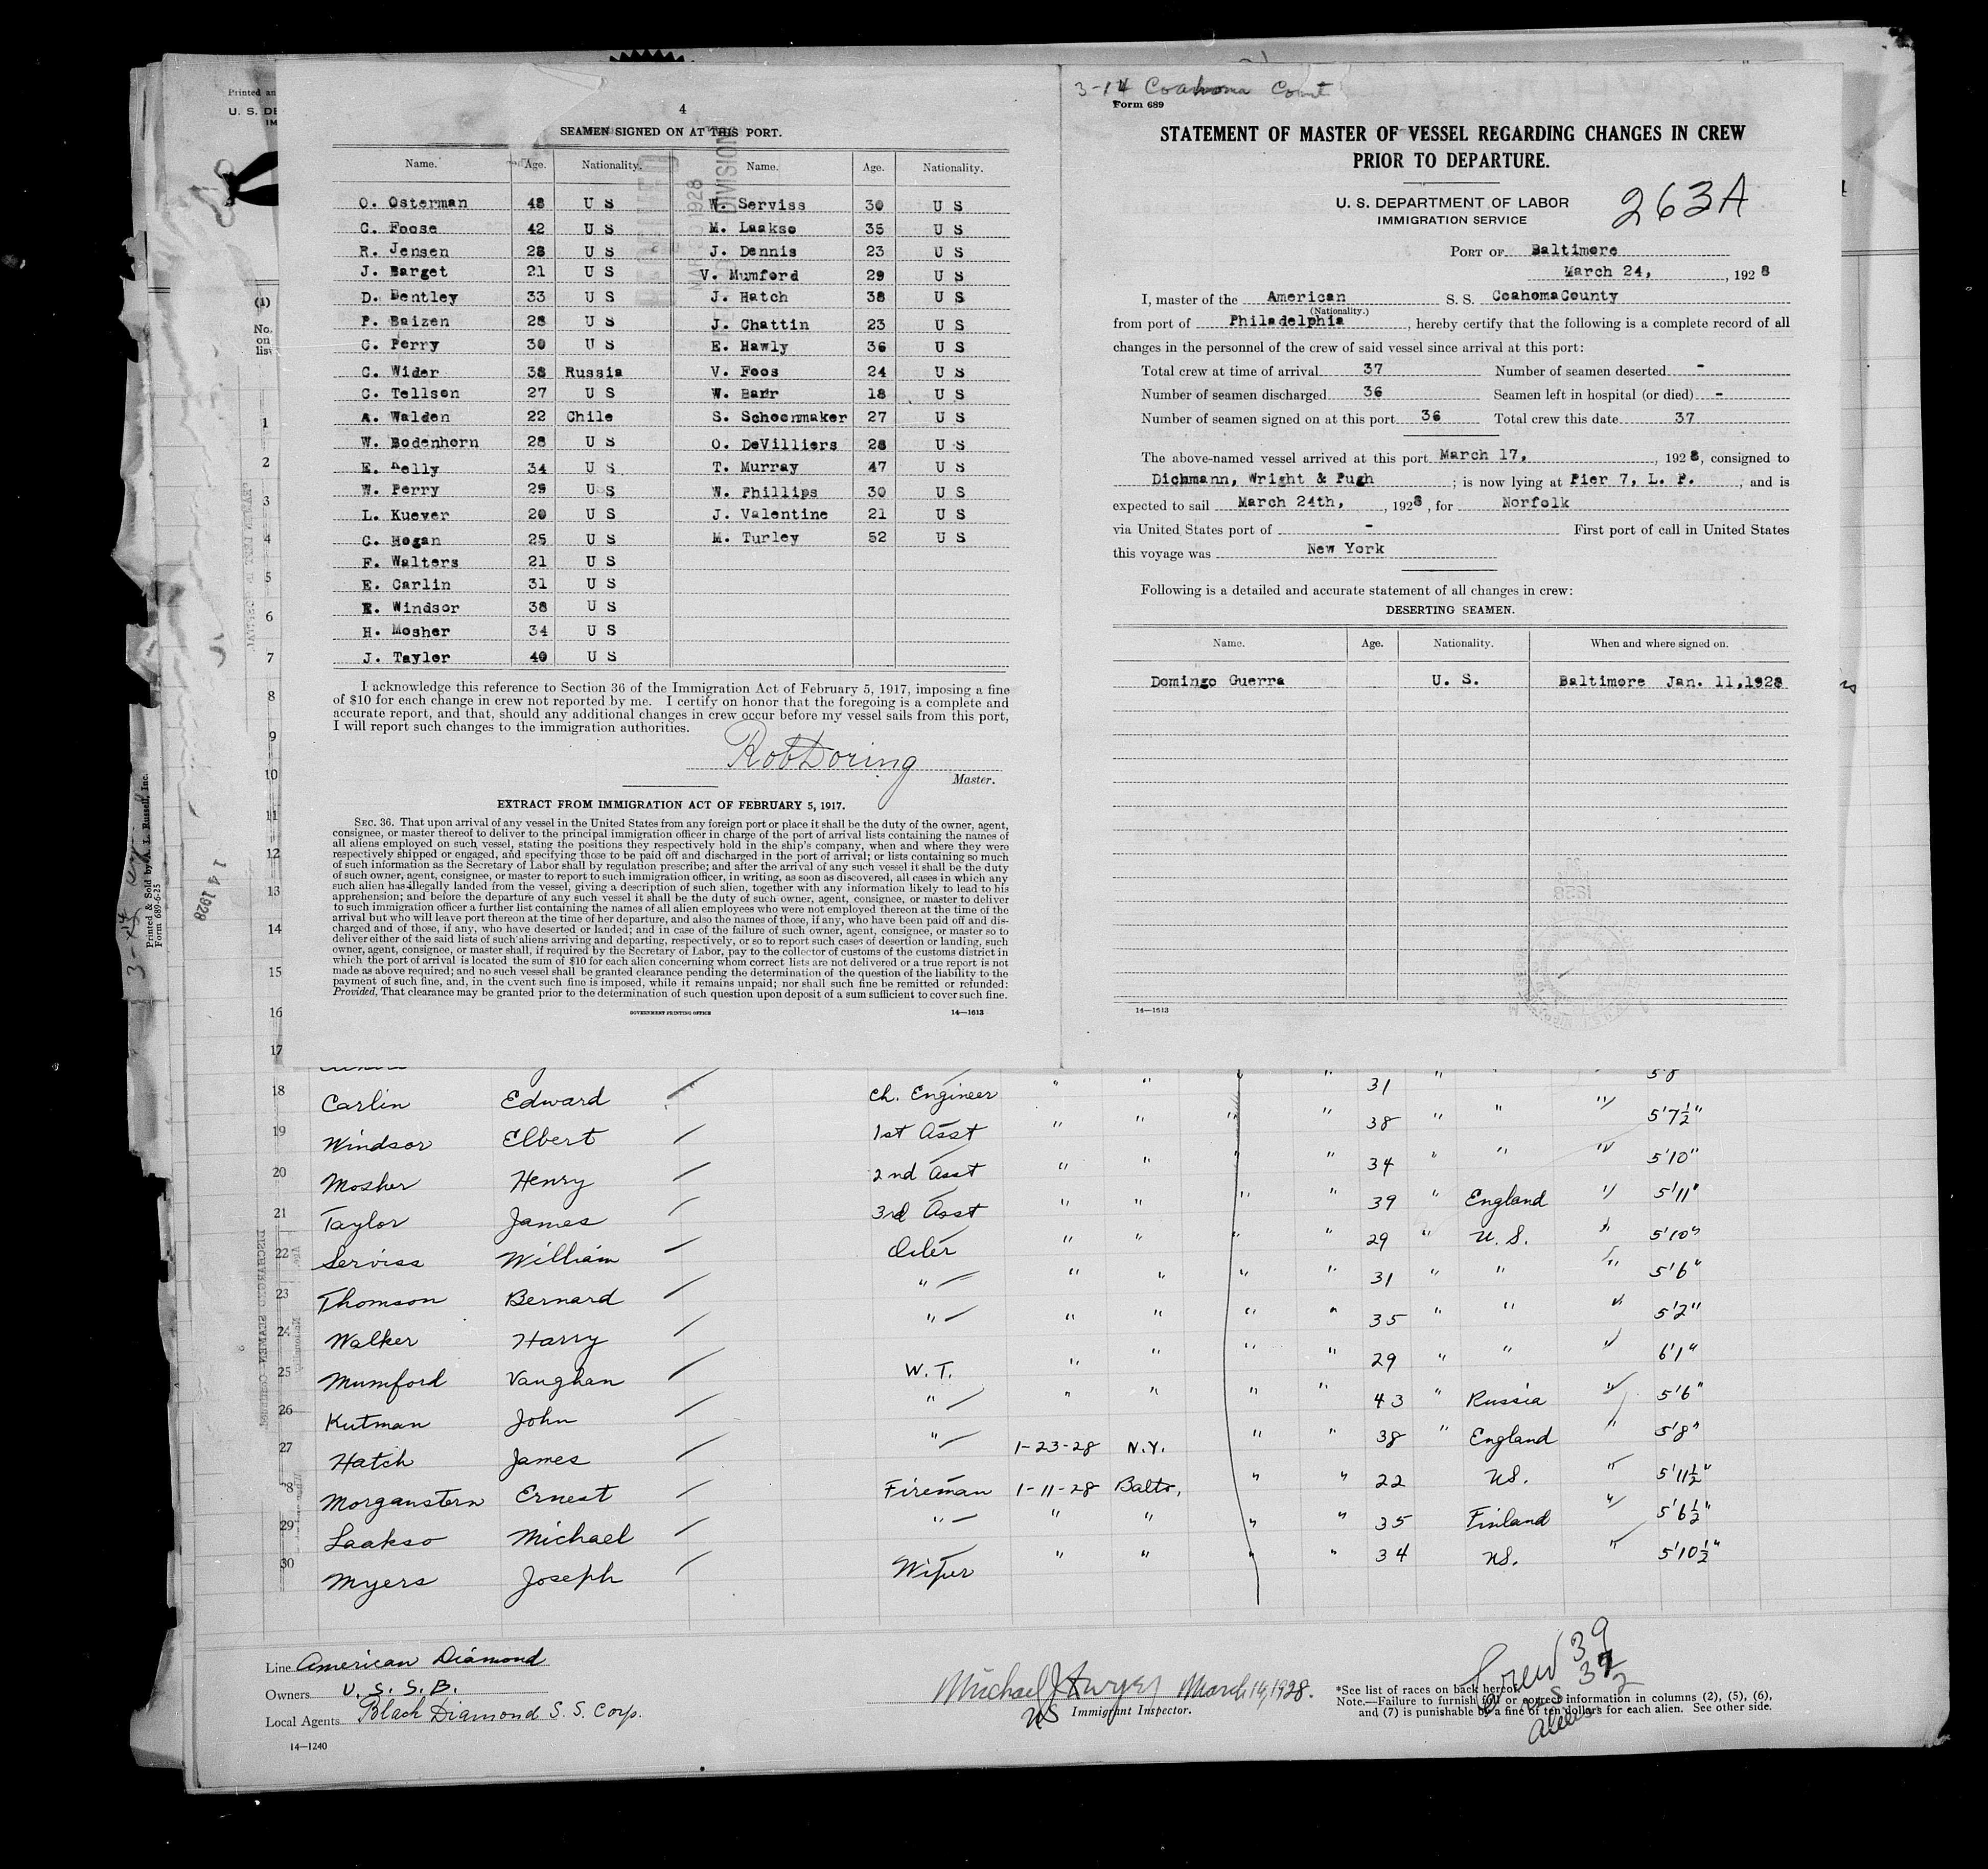 4
SEAMEN SIGNED ON AT THIS PORT.
Name. Age. Nationality. Name. Age. Nationality.
O. Osterman 48 U S W. Serviss 30 U S
C. Foose 42 U S M. Laakso 35 U S
R. Jensen 28 U S J. Dennis 23 U S
J. Barget 21 U S V. Mumford 29 U S
D. Bentley 33 U S J. Hatch 38 U S
P. Baizen 28 U S J. Chattin 23 U S
C. Perry 30 U S E. Hawly 36 U S
C. Wider 38 Russia V. Foos 24 U S
C. Tellson 27 U S W. Barr 18 U S
A. Walden 22 Chile S. Schoonmaker 27 U S
W. Bodenhorn 28 U S O. DeVilliers 28 U S
E. Kelly 34 U S T. Murray 47 U S
W. Perry 29 U S W. Phillips 30 U S
L. Kuever 20 U S J. Valentine 21 U S
C. Hogan 25 U S M. Turley 52 U S
F. Walters 21 U S
E. Carlin 31 U S
E. Windsor 38 U S
H. Mosher 34 U S
J. Tayler 40 U S
I acknowledge this reference to Section 36 of the Immigration Act of February 5, 1917, imposing a fine
of $10 for each change in crew not reported by me. I certify on honor that the foregoing is a complete and
accurate report, and that, should any additional changes in crew occur before my vessel sails from this port,
I will report such changes to the immigration authorities.
Rob Doring
Master.
EXTRACT FROM IMMIGRATION ACT OF FEBRUARY 5, 1917.
SEC. 36. That upon arrival of any vessel in the United States from any foreign port or place it shall be the duty of the owner, agent,
consignee, or master thereof to deliver to the principal immigration officer in charge of the port of arrival lists containing the names of
all aliens employed on such vessel, stating the positions they respectively hold in the ship's company, when and where they were
respectively shipped or engaged, and specifying those to be paid off and discharged in the port of arrival; or lists containing so much
of such information as the Secretary of Labor shall by regulation prescribe; and after the arrival of any such vessel it shall be the duty
of such owner, agent, consignee, or master to report to such immigration officer, in writing, as soon as discovered, all cases in which any
such alien has illegally landed from the vessel, giving a description of such alien, together with any information likely to lead to his
apprehension; and before the departure of any such vessel it shall be the duty of such owner, agent, consignee, or master to deliver
to such immigration officer a further list containing the names of all alien employees who were not employed thereon at the time of the
arrival but who will leave port thereon at the time of her departure, and also the names of those, if any, who have been paid off and dis-
charged and of those, if any, who have deserted or landed; and in case of the failure of such owner, agent, consignee, or master so to
deliver either of the said lists of such aliens arriving and departing, respectively, or so to report such cases of desertion or landing, such
owner, agent, consignee, or master shall, if required by the Secretary of Labor, pay to the collector of customs of the customs district in
which the port of arrival is located the sum of $10 for each alien concerning whom correct lists are not delivered or a true report is not
made as above required; and no such vessel shall be granted clearance pending the determination of the question of the liability to the
payment of such fine, and, in the event such fine is imposed, while it remains unpaid; nor shall such fine be remitted or refunded:
Provided, That clearance may be granted prior to the determination of such question upon deposit of a sum sufficient to cover such fine.
GOVERNMENT PRINTING OFFICE 14—1613
3-14 Coahoma Count
Form 689
STATEMENT OF MASTER OF VESSEL REGARDING CHANGES IN CREW
PRIOR TO DEPARTURE.
U. S. DEPARTMENT OF LABOR
IMMIGRATION SERVICE
263A
PORT OF Baltimore
March 24, , 1928
I, master of the American S. S. CoahomaCounty
(Nationality.)
from port of Philadelphia , hereby certify that the following is a complete record of all
changes in the personnel of the crew of said vessel since arrival at this port:
Total crew at time of arrival 37 Number of seamen deserted -
Number of seamen discharged 36 Seamen left in hospital (or died) -
Number of seamen signed on at this port 36 Total crew this date 37
The above-named vessel arrived at this port March 17, , 1928, consigned to
Dichmann, Wright & Pugh ; is now lying at Pier 7, L. P. , and is
expected to sail March 24th, , 1928, for Norfolk
via United States port of - First port of call in United States
this voyage was New York
Following is a detailed and accurate statement of all changes in crew:
DESERTING SEAMEN.
Name. Age. Nationality. When and where signed on.
Domingo Guerra U. S. Baltimore Jan. 11,1928
14—1613
Printed an
U. S. DE
IM
(1)
No.
on
list
1
2
3
4
5
6
7
8
9
10
11
12
13
14
15
16
17
Printed & Sold by A. L. Russell, Inc.
Form 689-6-25
14 1928
31 " 5'8
18 Carlin Edward Ch. Engineer " " " 38 " " " 5'7½"
19 Windsor Elbert 1st Asst " " " " 34 " " " 5'10"
20 Mosher Henry 2nd Asst " " " " 39 " England " 5'11"
21 Taylor James 3rd Asst " " " " 29 " U. S. " 5'10"
22 Serviss William Oiler " " " " 31 " " " 5'6"
23 Thomson Bernard " " " " " 35 " " " 5'2"
24 Walker Harry " " " " " 29 " " " 6'1"
25 Mumford Vaughan W. T. " " " " 43 " Russia " 5'6"
26 Kutman John " " " " " 38 " England " 5'8"
27 Hatch James " 1-23-28 N.Y. " " 22 US. " 5'11½"
28 Morganstern Ernest Fireman 1-11-28 Balto, " " 35 Finland " 5'6½"
29 Laakso Michael " " " " " 34 US. " 5'10½"
30 Myers Joseph Wiper " "
Line American Diamond
Owners U. S. S. B.
Local Agents Black Diamond S. S. Corp.
14—1240
Michael J Dwyer March 14, 1928.
US Immigrant Inspector.
Crew 39
US 37
Aliens 2
*See list of races on back hereof.
Note.—Failure to furnish full or correct information in columns (2), (5), (6),
and (7) is punishable by a fine of ten dollars for each alien. See other side.